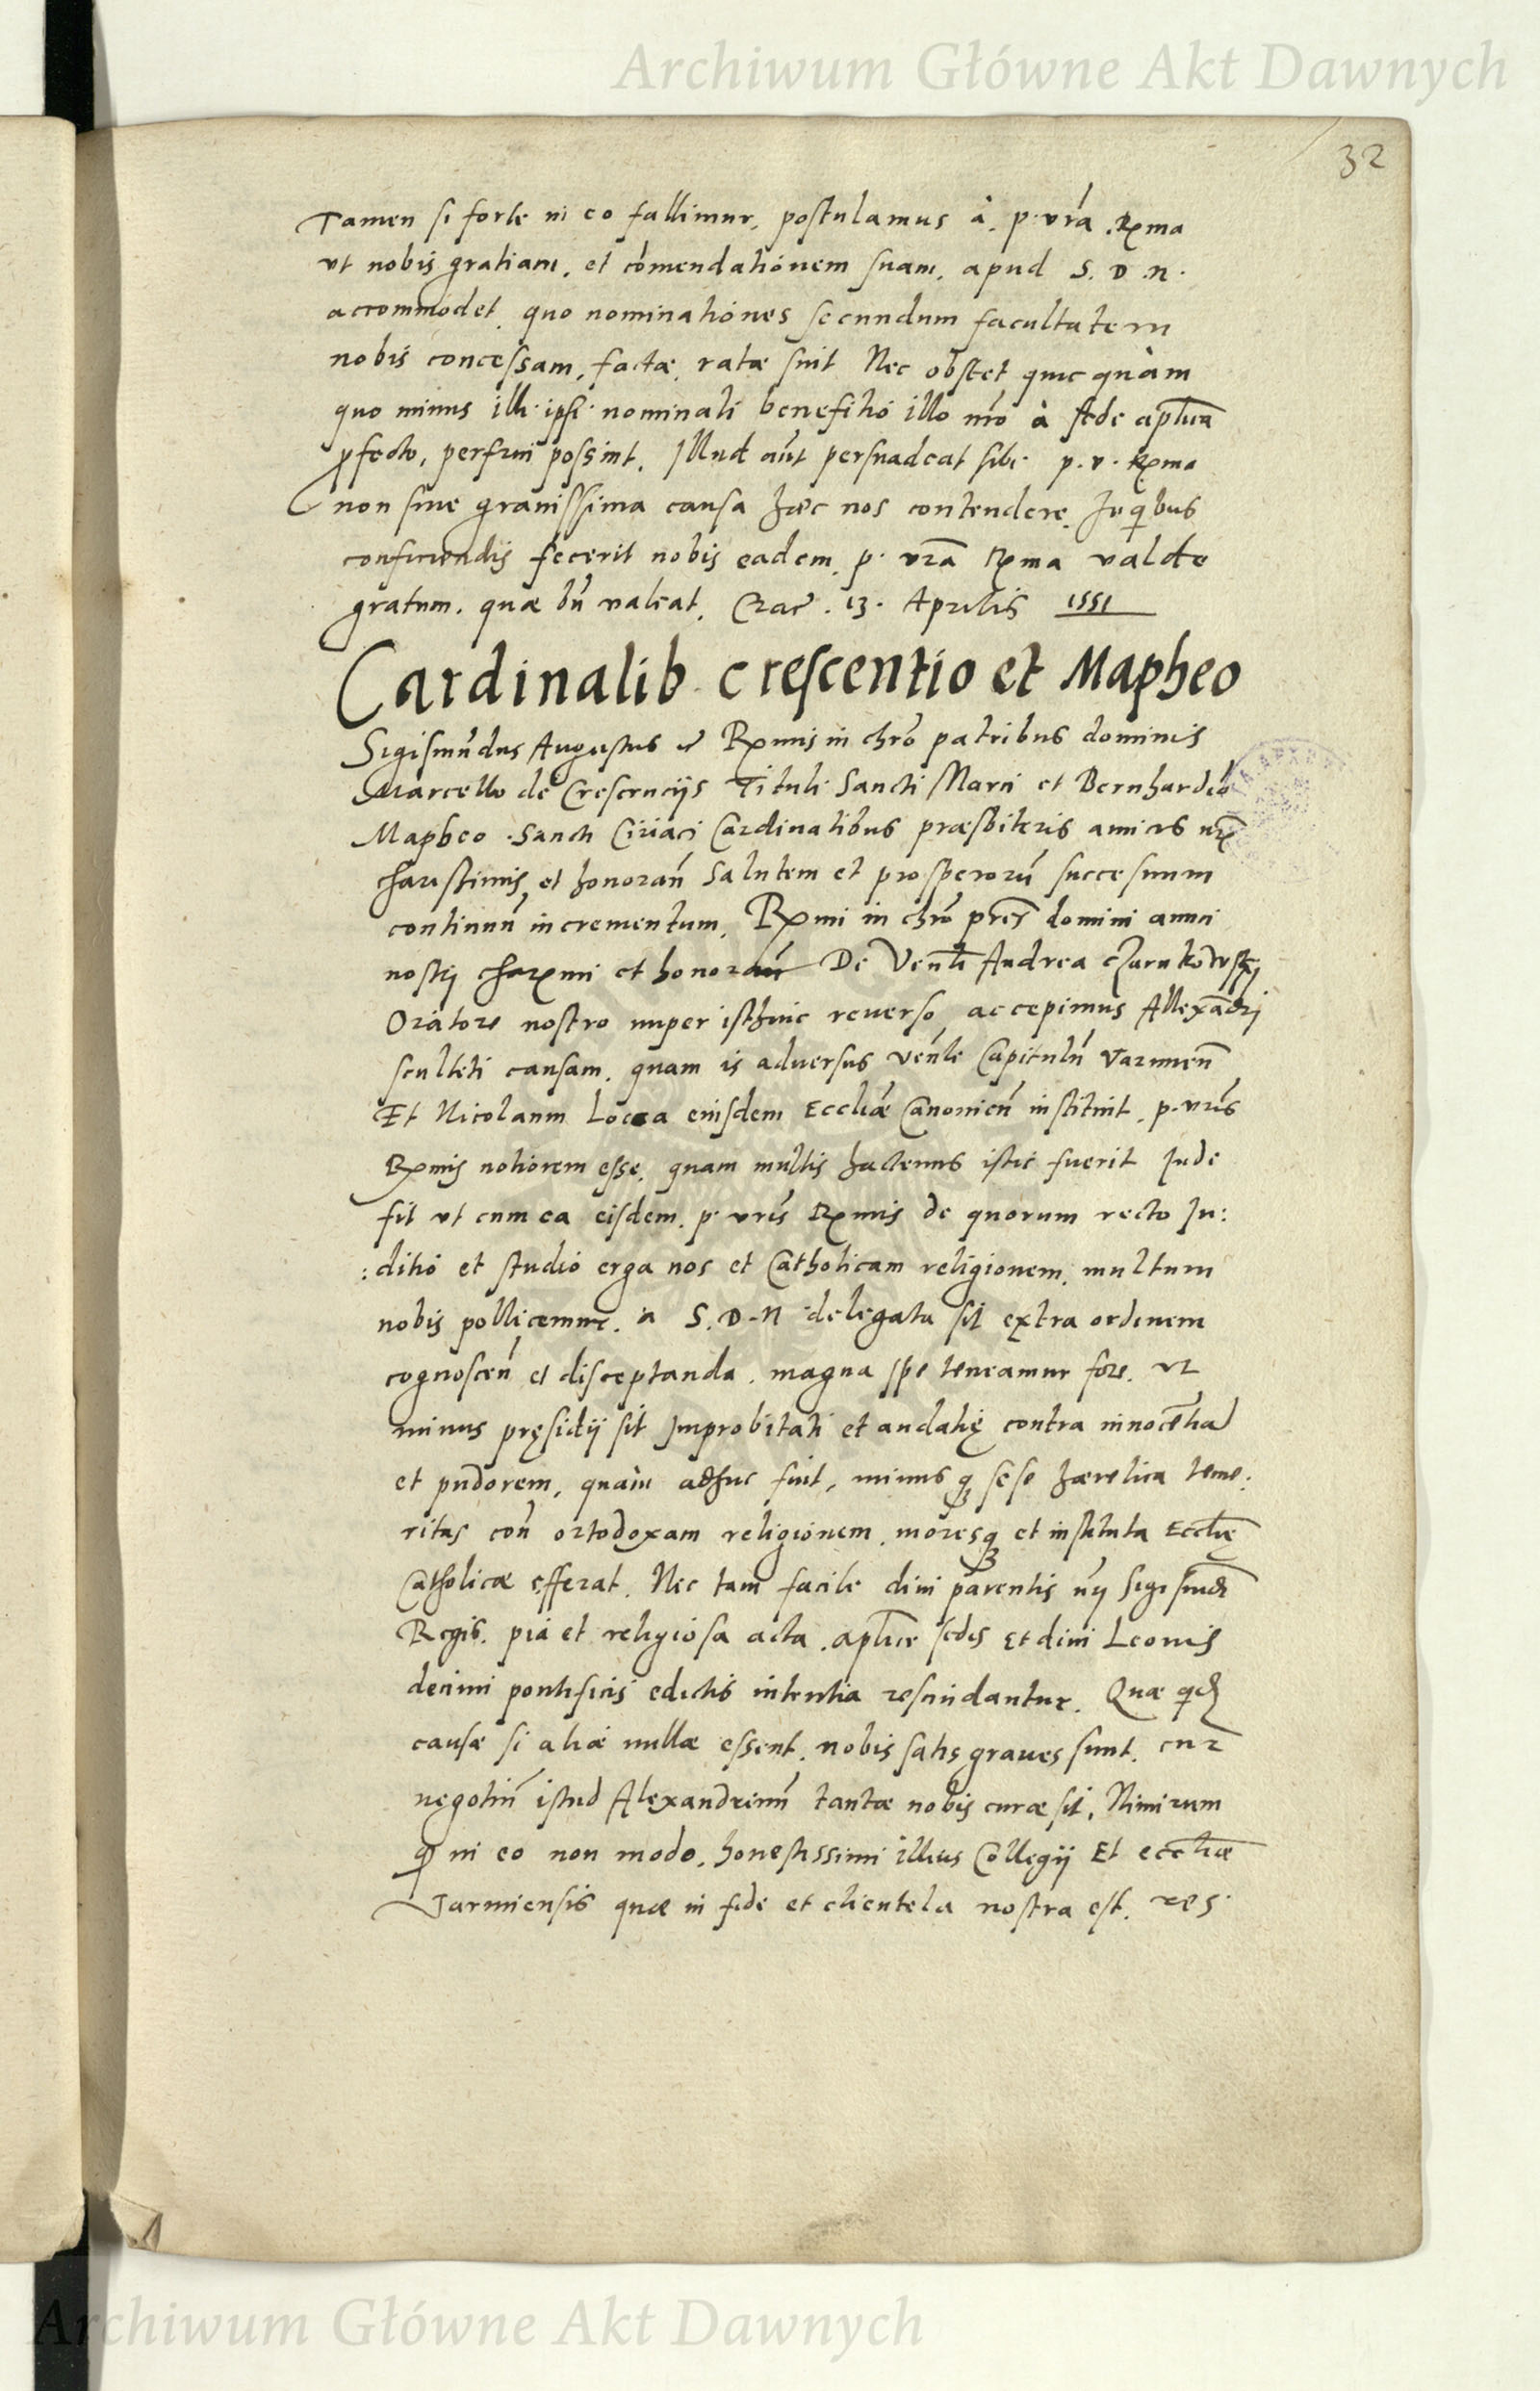 Archiwum Główne Akt Dawnych
32
Tamen si forte in eo fallimur, postulamus à. p. vrâ .Rma
vt nobis gratiam, et cōmendationem suam, apud S. D. N.
accommodet, quo nominationes secundum facultatem
nobis concessam, factæ, ratæ sint Nec obstet quicquàm
quo minus illi ipsi nominati benefitio illo nrō à sede aplica
profecto, perfrui possint. Illud aut persuadeat sibi p. v. Rma
non sine grauissima causa hæc nos contendere. In quibus
conficiendis fecerit nobis eadem, p. vra Rma valde
gratum. quæ bn valeat. Crac. 13. Aprilis 1551
Cardinalib. Crescentio et Mapheo
Sigismūdus Augustus etc Rmis in chrō patribus dominis
Marcello de Crescencijs Tituli Sancti Marci et Bernhardo
Mapheo Sancti Ciriaci Cardinalibus præsbiteris amicis nrīs
charissimis et honoran̄ salutem et prosperorū successuum
continuū incrementum. Rmi in chrō pres domini amici
nostrj charmi et honoran̄ De Venli Andrea Czarnkowskj
Oratore nostro nuper isthuic reuerso accepimus Allexādrj
sculteti causam, quam is aduersus venle Capitulū Varmien̄
Et Nicolaum Locka eiusdem Eccliæ Canonicū instituit, p. vris
Rmis notiorem esse, quam multis hactenus istic fuerit Inde
fit vt cum ea eisdem p. vris Rmis de quorum recto Iu:
:ditio et studio erga nos et Catholicam religionem, multum
nobis pollicemur, a S. D. N delegata sit extra ordinem
cognoscen̄ et disceptanda, magna spe teneamur fore, vt
minus pręsidij sit Improbitati et audatię contra innocētia
et pudorem, quàm adhuc fuit, minusq sese hæretica teme:
ritas con̄ ortodoxam religionem, moresq et instituta Ecclię
Catholicæ efferat. Nec tam facile diui parentis nrj Sigismūdi
Regis, pia et religiosa acta, aplicæ sedis Et diui Leonis
decimi pontificis edictis rescindantur. Quæ qd
causæ si aliæ nullæ essent, nobis satis graues sunt, cur
negotiū istud Alexandrinū tantæ nobis curæ sit, Nimirum
q in eo non modo, honestissimi illius Collegij Et eccliæ
Varmiensis quæ in fide et clientela nostra est, res
Archiwum Główne Akt Dawnych